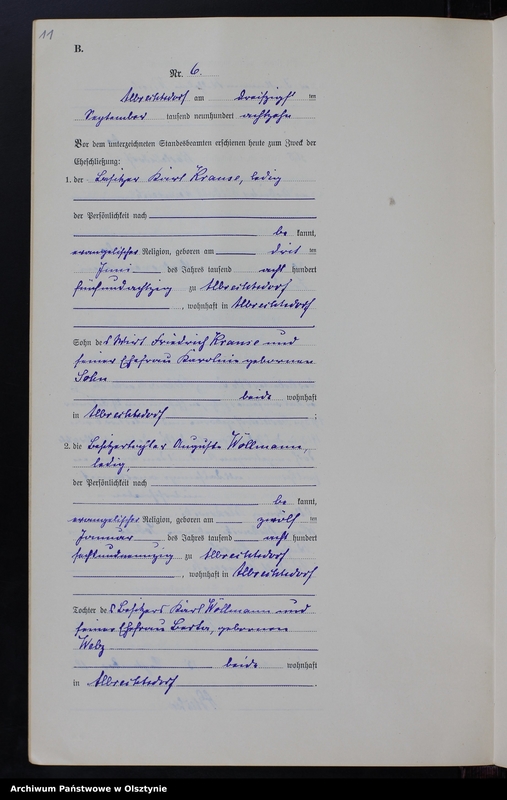 11
B.
Nr. 6.
Albrechtsdorf am dreißigst ten
September tausend neunhundert achtzehn
Vor dem unterzeichneten Standesbeamten erschienen heute zum Zweck der
Eheschließung:
1. der Besitzer Karl Krause, ledig
der Persönlichkeit nach
be kannt,
evangelischer Religion, geboren am drit ten
Juni des Jahres tausend acht hundert
fünfundachtzig zu Albrechtsdorf
, wohnhaft in Albrechtsdorf
Sohn des Wirt Friedrich Krause und
seiner Ehefrau Karoline geborenen
Sohn
beide wohnhaft
in Albrechtsdorf ;
2. die Besitzertochter Auguste Wöllmann,
ledig,
der Persönlichkeit nach
be kannt,
evangelischer Religion, geboren am zwölf ten
Januar des Jahres tausend acht hundert
sechsundneunzig zu Albrechtsdorf
, wohnhaft in Albrechtsdorf
Tochter des Besitzers Karl Wöllmann und
seiner Ehefrau Berta, geborenen
Welz
beide wohnhaft
in Albrechtsdorf .
Archiwum Państwowe w Olsztynie